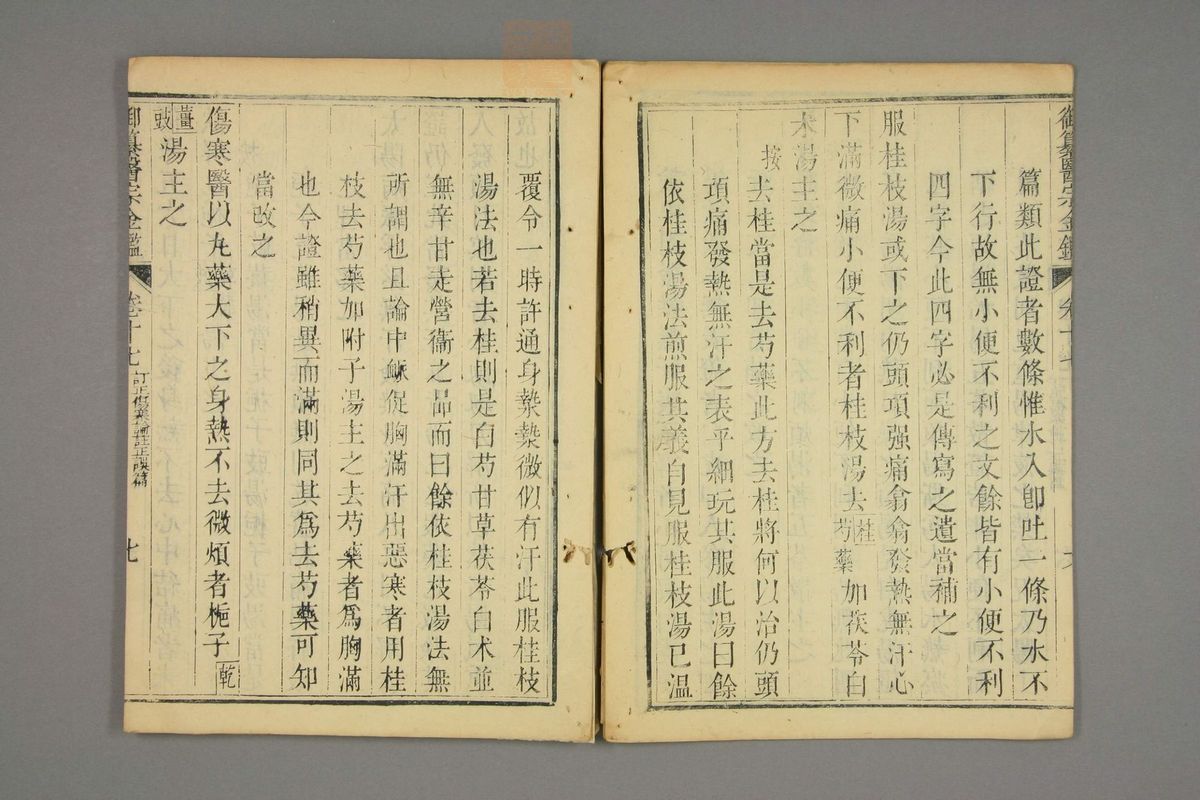 御纂醫宗金鑑
篇類此證者數條惟水入卽吐一條乃水不
下行故無小便不利之文餘皆有小便不利
四字今此四字必是傳寫之遺當補之
服桂枝湯或下之仍頭項强痛翕翕發熱無汗心
下滿微痛小便不利者桂枝湯去桂芍藥加茯苓白
朮湯主之
按去桂當是去芍藥此方去桂將何以治仍頭
項痛發熱無汗之表乎細玩其服此湯曰餘
依桂枝湯法煎服其義自見服桂枝湯已溫
覆令一時許通身漐漐微似有汗此服桂枝
湯法也若去桂則是白芍甘草茯苓白朮並
無辛甘走營衞之品而曰餘依桂枝湯法無
所謂也且論中脈促胸滿汗出惡寒者用桂
枝去芍藥加附子湯主之去芍藥者爲胸滿
也今證雖稍異而滿則同其爲去芍藥可知
當改之
傷寒醫以丸藥大下之身熱不去微煩者梔子乾
薑豉湯主之
御纂醫宗金鑑 卷十七 訂正傷寒論註正誤篇 七